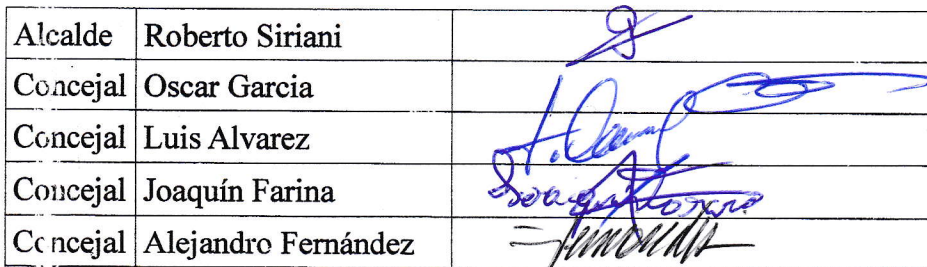 Alcalde Roberto Siriani
Concejal Oscar Garcia
Concejal Luis Alvarez
Concejal Joaquín Farina
Concejal Alejandro Fernández